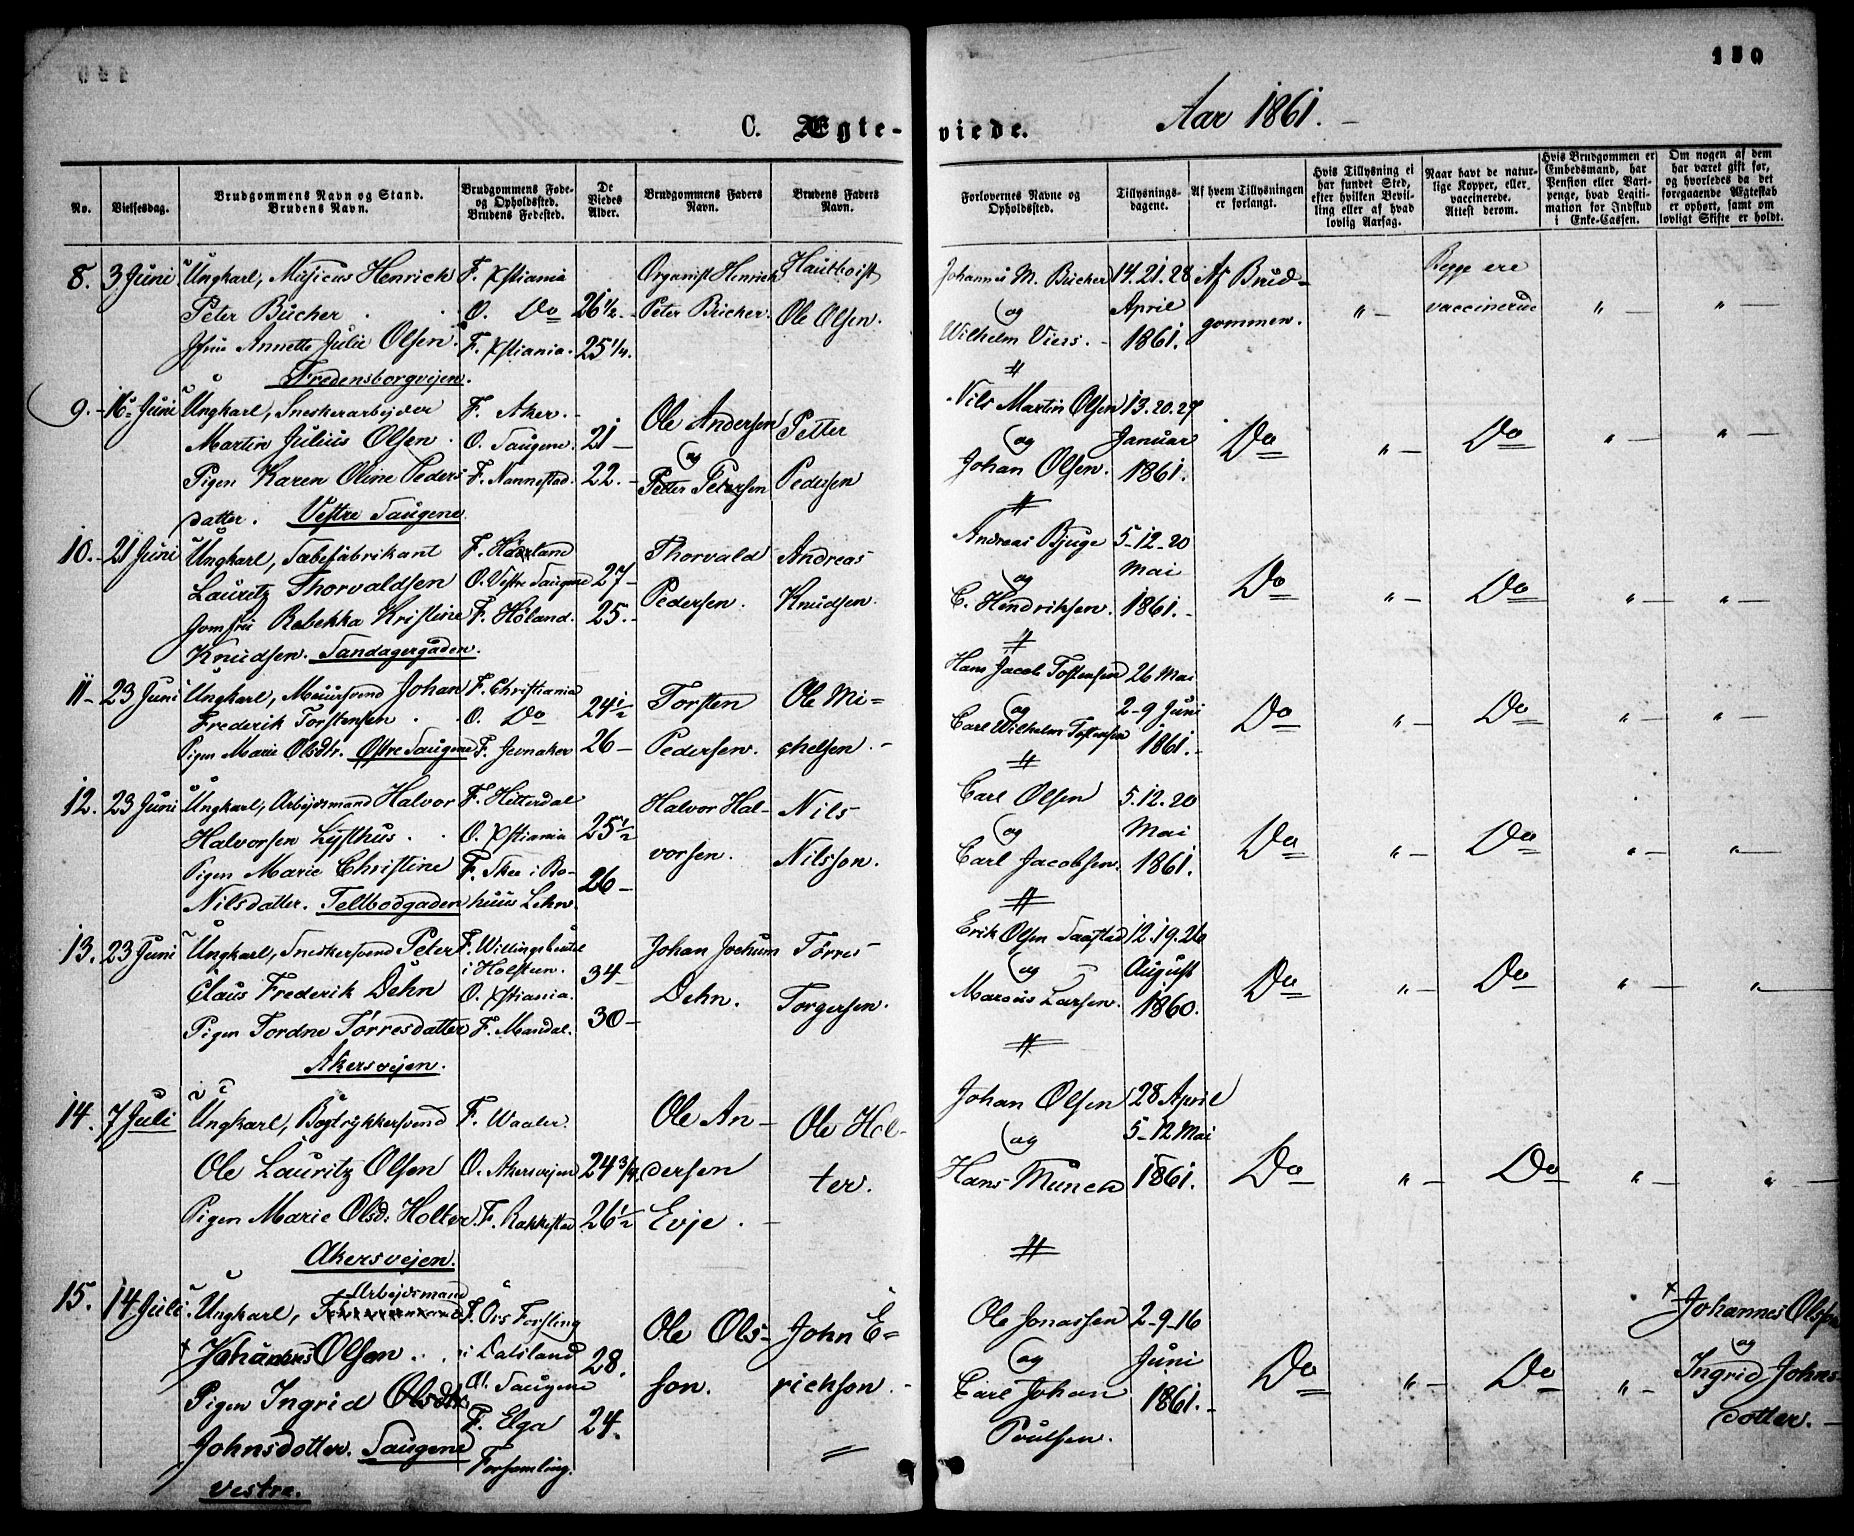 150
C. Ægte-
viede.
Aar 1861. -
No.
Vielsesdag.
Brudgommens Navn og Stand.
Brudens Navn.
Brudgommens Føde-
og Opholdssted.
Brudens Fødested.
De
Viedes
Alder.
Brudgommens Faders
Navn.
Brudens Faders
Navn.
Forlovernes Navne og
Opholdssted.
Tillysnings-
dagene.
Af hvem Tillysningen
er forlangt.
Hvis Tillysning ei
har fundet Sted,
efter hvilken Bevil-
ling eller af hvad
lovlig Aarsag.
Naar havt de natur-
lige Kopper, eller
vaccinerede.
Attest derom.
Hvis Brudgommen er
Embedsmand, har
Pension eller Vart-
penge, hvad Legiti-
mation for Indskud
i Enke-Cassen.
Om nogen af dem
har været gift før,
og hvorledes da det
foregaaende Ægteskab
er ophørt, samt om
lovligt Skifte er holdt.
8. 3 Juni Ungkarl, Musicus Henrich F. Xstiania Organist Henrich Hautboist
Peter Bücher . . O. Do 26 1/2 - Peter Bücher. Ole Olsen.
Jfru Annette Julie Olsen. F. Xstiania. 25 1/4.
Fredensborgveien.
Johannes M. Bücher 14. 21. 28 Af Brud- Begge ere
og April gommen. " - vaccinerede " - " -
Wilhelm Viers. - 1861.
9. - 16. Juni Ungkarl, Snekerarbejder F. Aker. - Ole Andersen Petter
Martin Julius Olsen . O. Saugene. 21 - og
Pigen Karen Oline Peders F. Nannestad. 22. - Petter Petersen Pedersen
datter. Vestre Saugene.
Nils Martin Olsen 13. 20. 27
og Januar Do " - Do " - " -
Johan Olsen. 1861.
10. - 21 Juni Ungkarl, Sæbefabrikant F. Høland Thorvald Andreas
Lauritz Thorvaldsen O. Vestre Saugene 27 - Pedersen. Knudsen.
Jomfru Rebekka Kristine F. Høland. 25. -
Knudsen. Sandagergaden.
Andreas Bjuge 5-12-20
og Mai Do " - Do " - " -
C. Hendriksen. 1861. -
11 - 23 Juni Ungkarl, Muursvend Johan F. Christiania Torsten Ole Mi=
Frederik Torstensen . . O. Do 24 1/2
Pigen Marie Olsdtr. Østre Saugene F. Jevnaker 26 - Pedersen. chelsen. -
Hans Jacob Tostensen 26 Mai
og 2-9 Juni Do " - Do " - " -
Carl Wilhelm Tostensen 1861. -
12. 23 Juni Ungkarl, Arbejdsmand Halvor F. Hitterdal Halvor Hal- Nils
Halvorsen Lysthus . . O. Xstiania 25 1/2 vorsen. Nilsson.
Pigen Marie Christine F. Skee i Bo-
Nilsdatter. Teltbodgaden huus Lehn. 26 -
Carl Olsen 5. 12. 20
og Mai Do " - Do " - " -
Carl Jacobsen. 1861.
13. 23 Juni Ungkarl, Snekersvend Peter F. Willingsbüttel Johan Jochum Tørres
Claus Frederik Dehn i Holsteen. 34 - Dehn. Torgersen.
O. Xstiania.
Pigen Tordne Tørresdatter F. Mandal. 30 -
Akersvejen.
Erik Olsen 12. 19. 26
og August Do " - Do " - " -
Marcus Larsen. 1860.
14. 7 Juli Ungkarl, Bogtrykkersvend F. Waaler. Ole An- Ole Hol-
Ole Lauritz Olsen O. Akersvejen 24 3/4. dersen ter.
Pigen Marie Olsd: Holter F. Rakkestad 26 1/2 Evje. -
Akersvejen.
Johan Olsen 28 April
og 5-12 Mai
Hans Münch 1861. Do " - Do " - " -
15. 14 Juli. Ungkarl, Arbejdsmand F. Örs Forsling Ole Ols- John E=
× Johannes Olsen . . i Dalsland 28. son. richson. -
O. Saugene
Pigen Ingrid Olsdtr. F. Elga 24.
Johnsdotter. Saugene Forsamling.
vestre.
Ole Jonassen 2-9-16
og Juni Do " - Do " -
Carl Johan 1861. -
Poulsen.
× Johannes Olsson
og
Ingrid Johns-
dotter. -